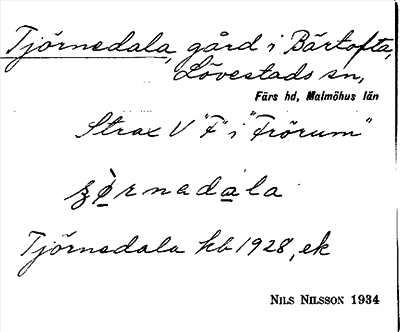 Tjörnedala, gård i Bärtofta,
Lövestads sn,
Färs hd, Malmöhus län
Strax V "F" i "Frörum"
ʂö̀rnedala
Tjörnedala kb 1928, ek
NILS NILSSON 1934